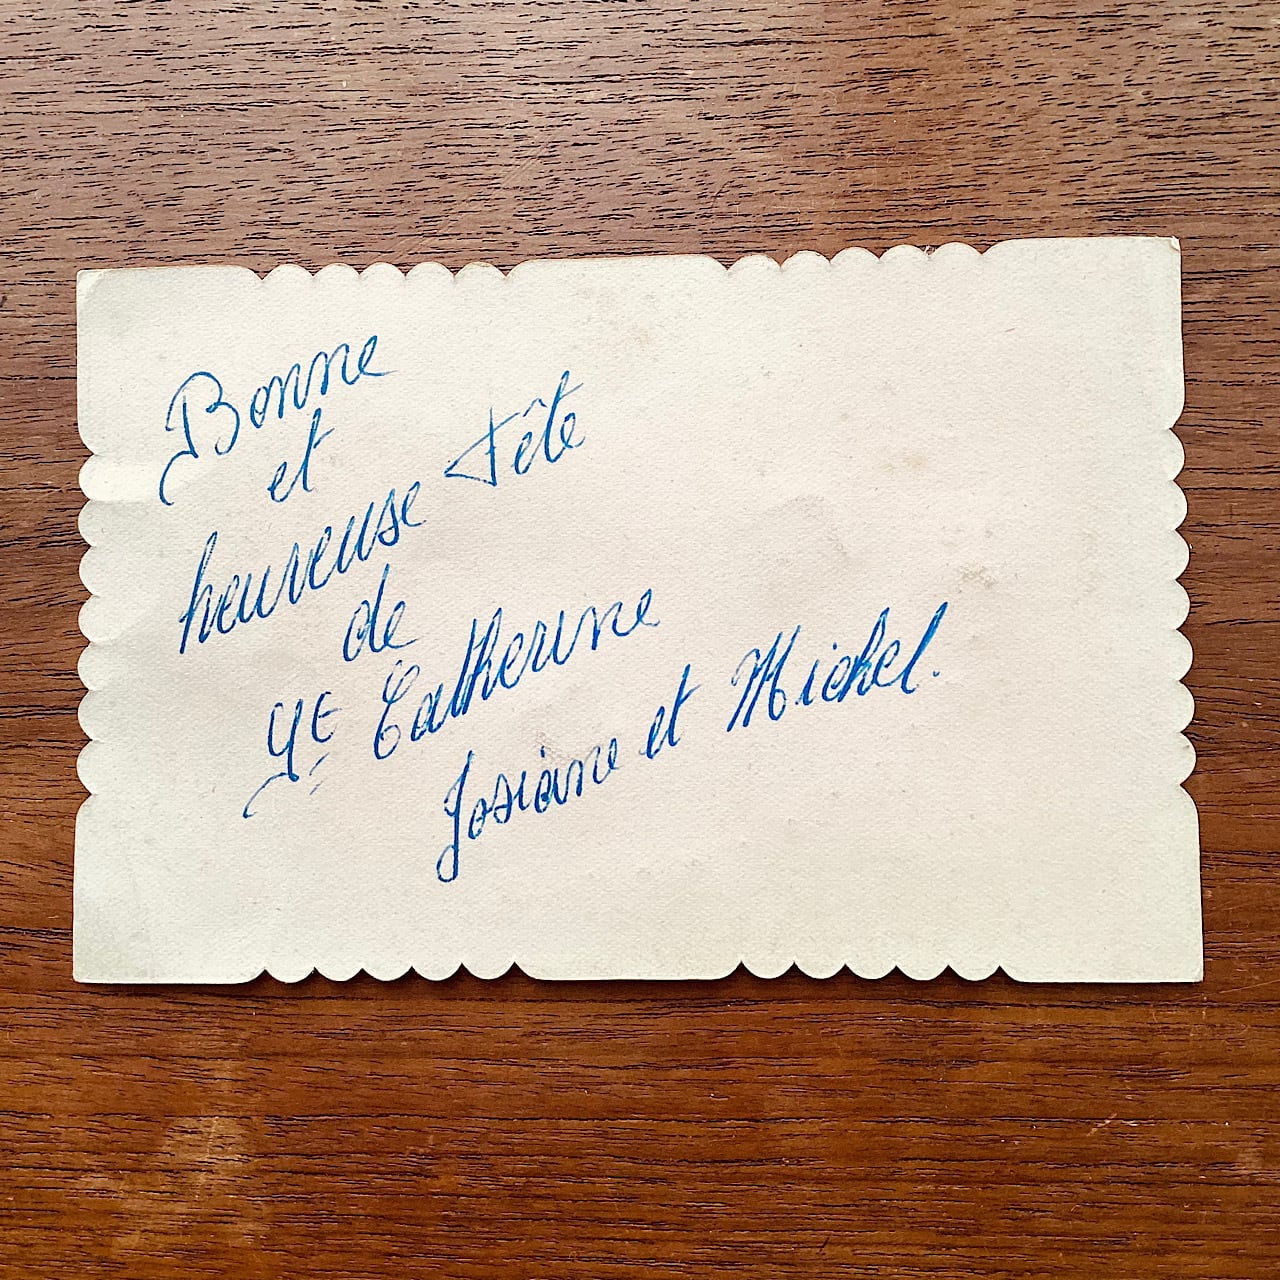 Bonne
et
heureuse Fête
de
Sте Catherine
Josiane et Michel.